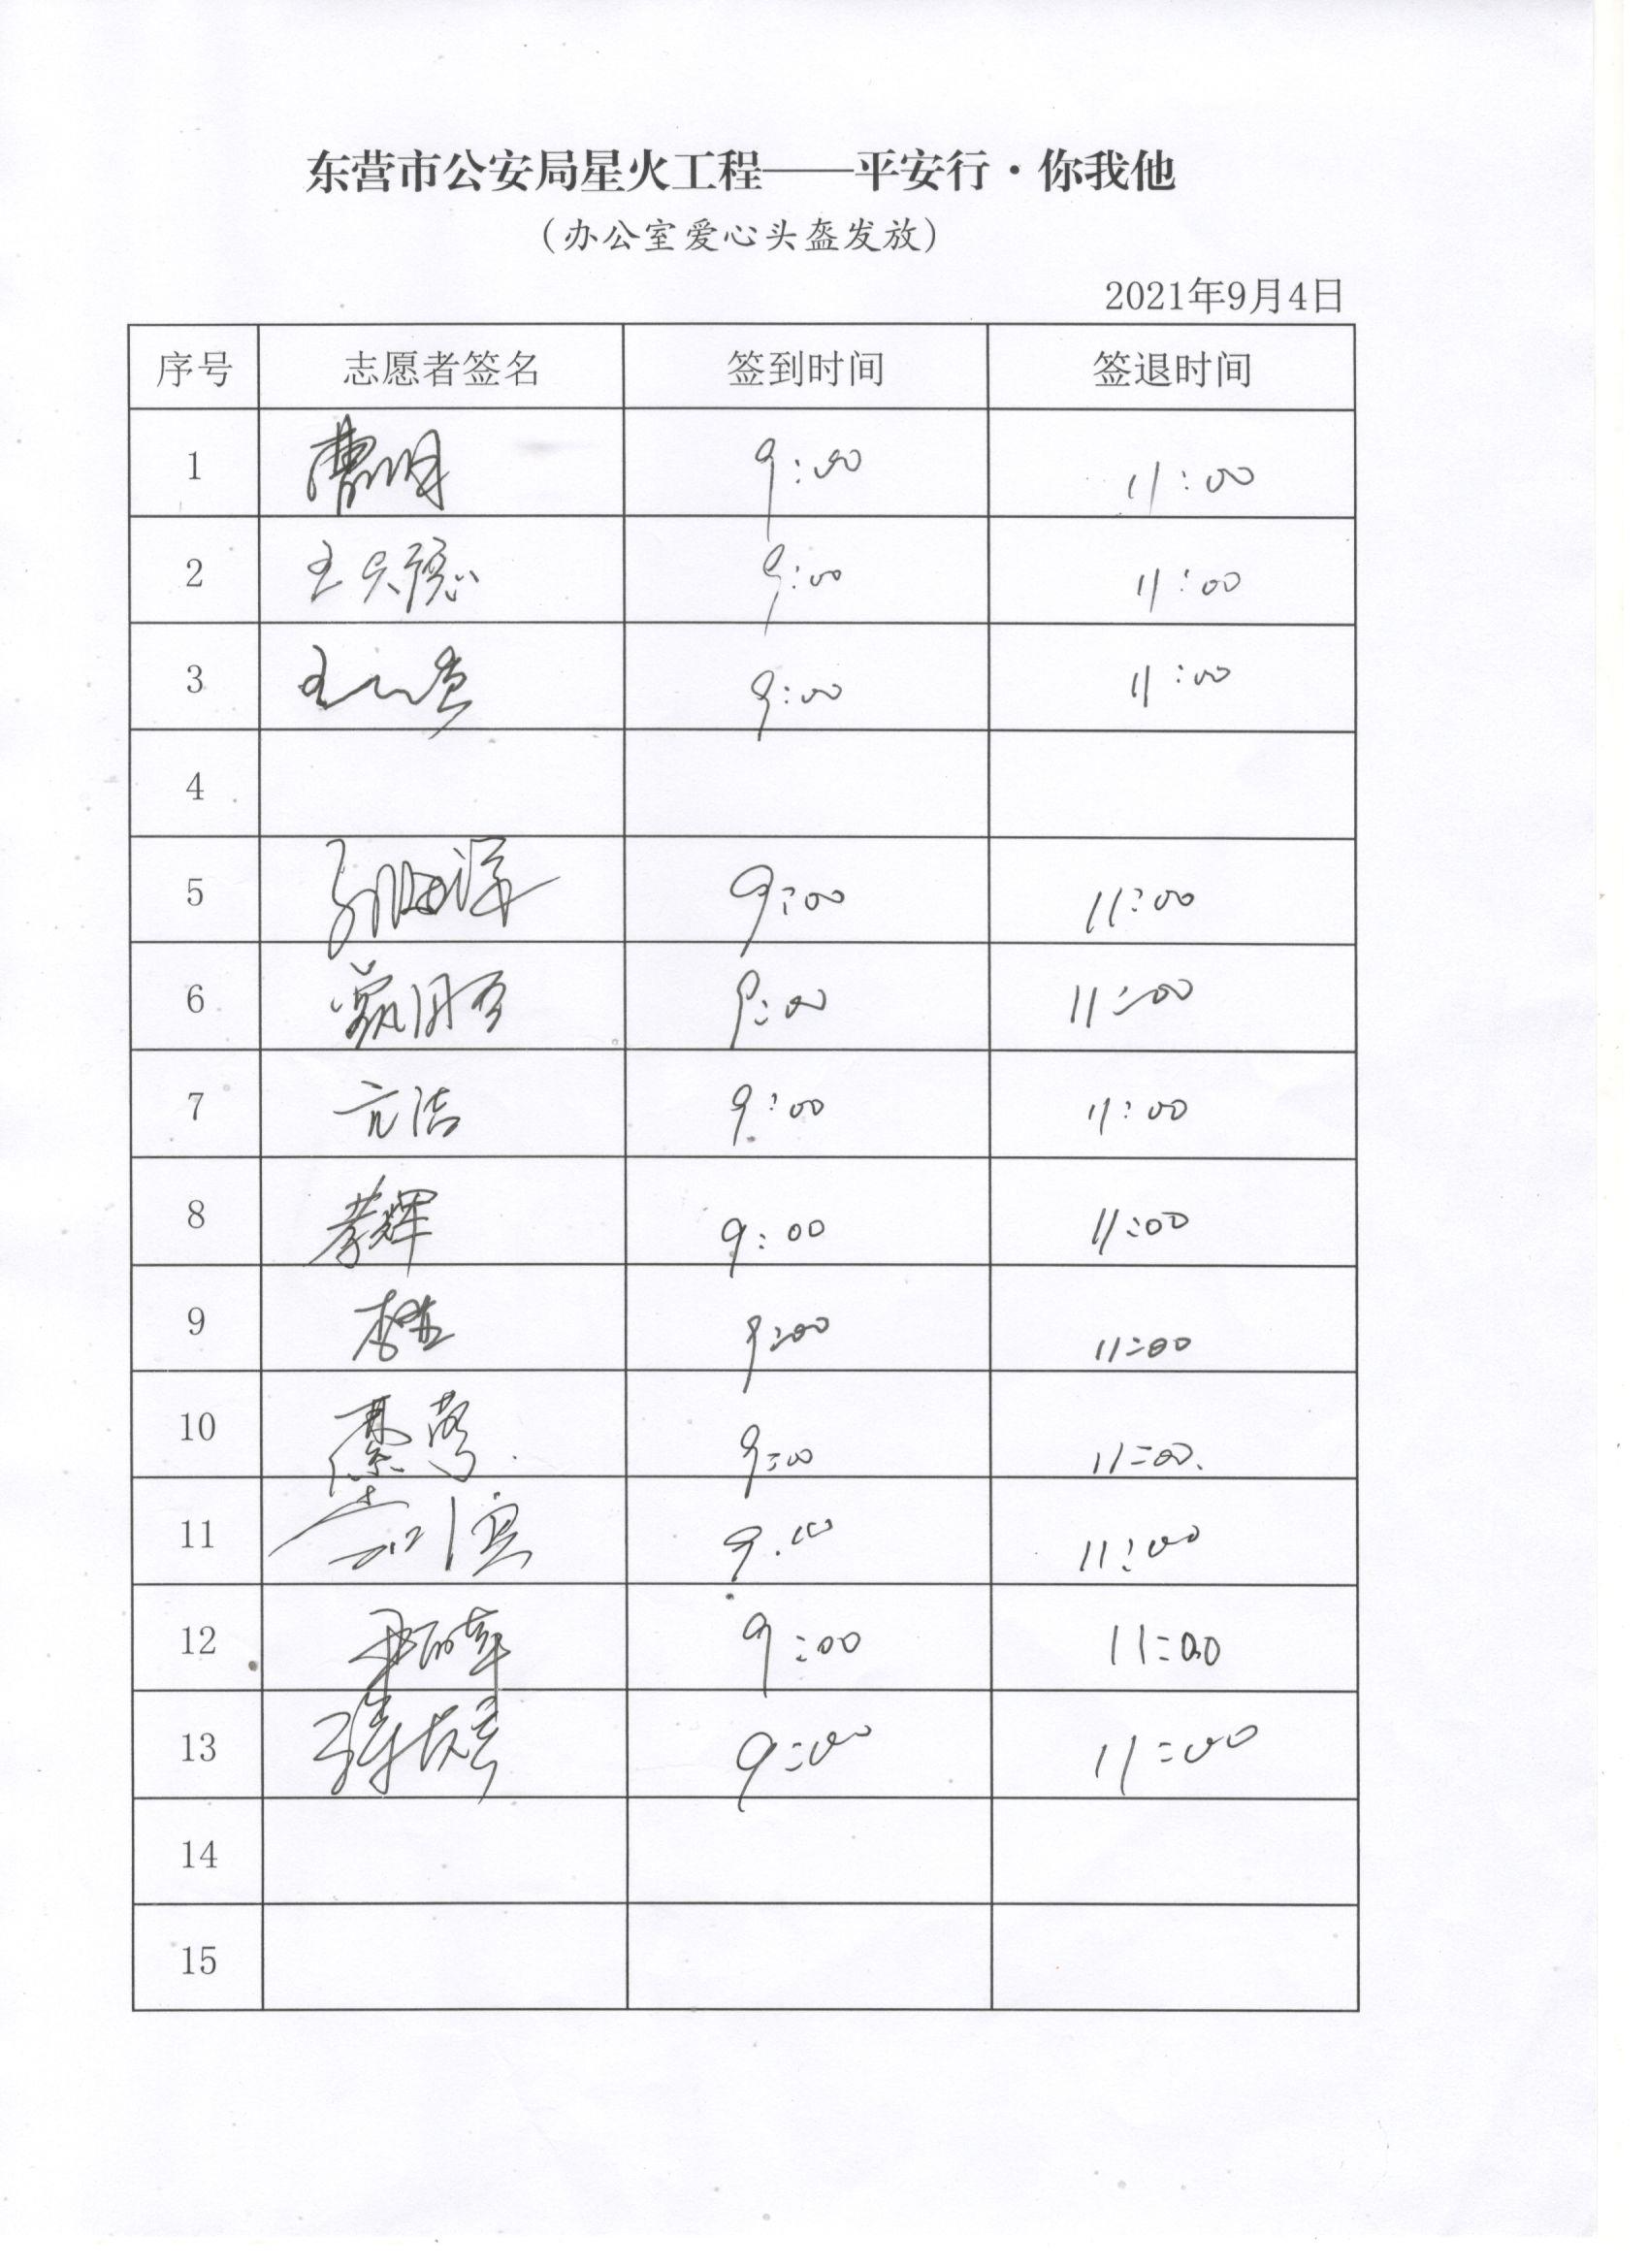 东营市公安局星火工程——平安行·你我他
（办公室爱心头盔发放）
2021年9月4日
序号 志愿者签名 签到时间 签退时间
1 曹明 9:00 11:00
2 9:00 11:00
3 9:00 11:00
4
5 孙海洋 9:00 11:00
6 9:00 11:00
7 亓洁 9:00 11:00
8 李辉 9:00 11:00
9 9:00 11:00
10 9:00 11:00.
11 9:00 11:00
12 9:00 11:00
13 9:00 11:00
14
15